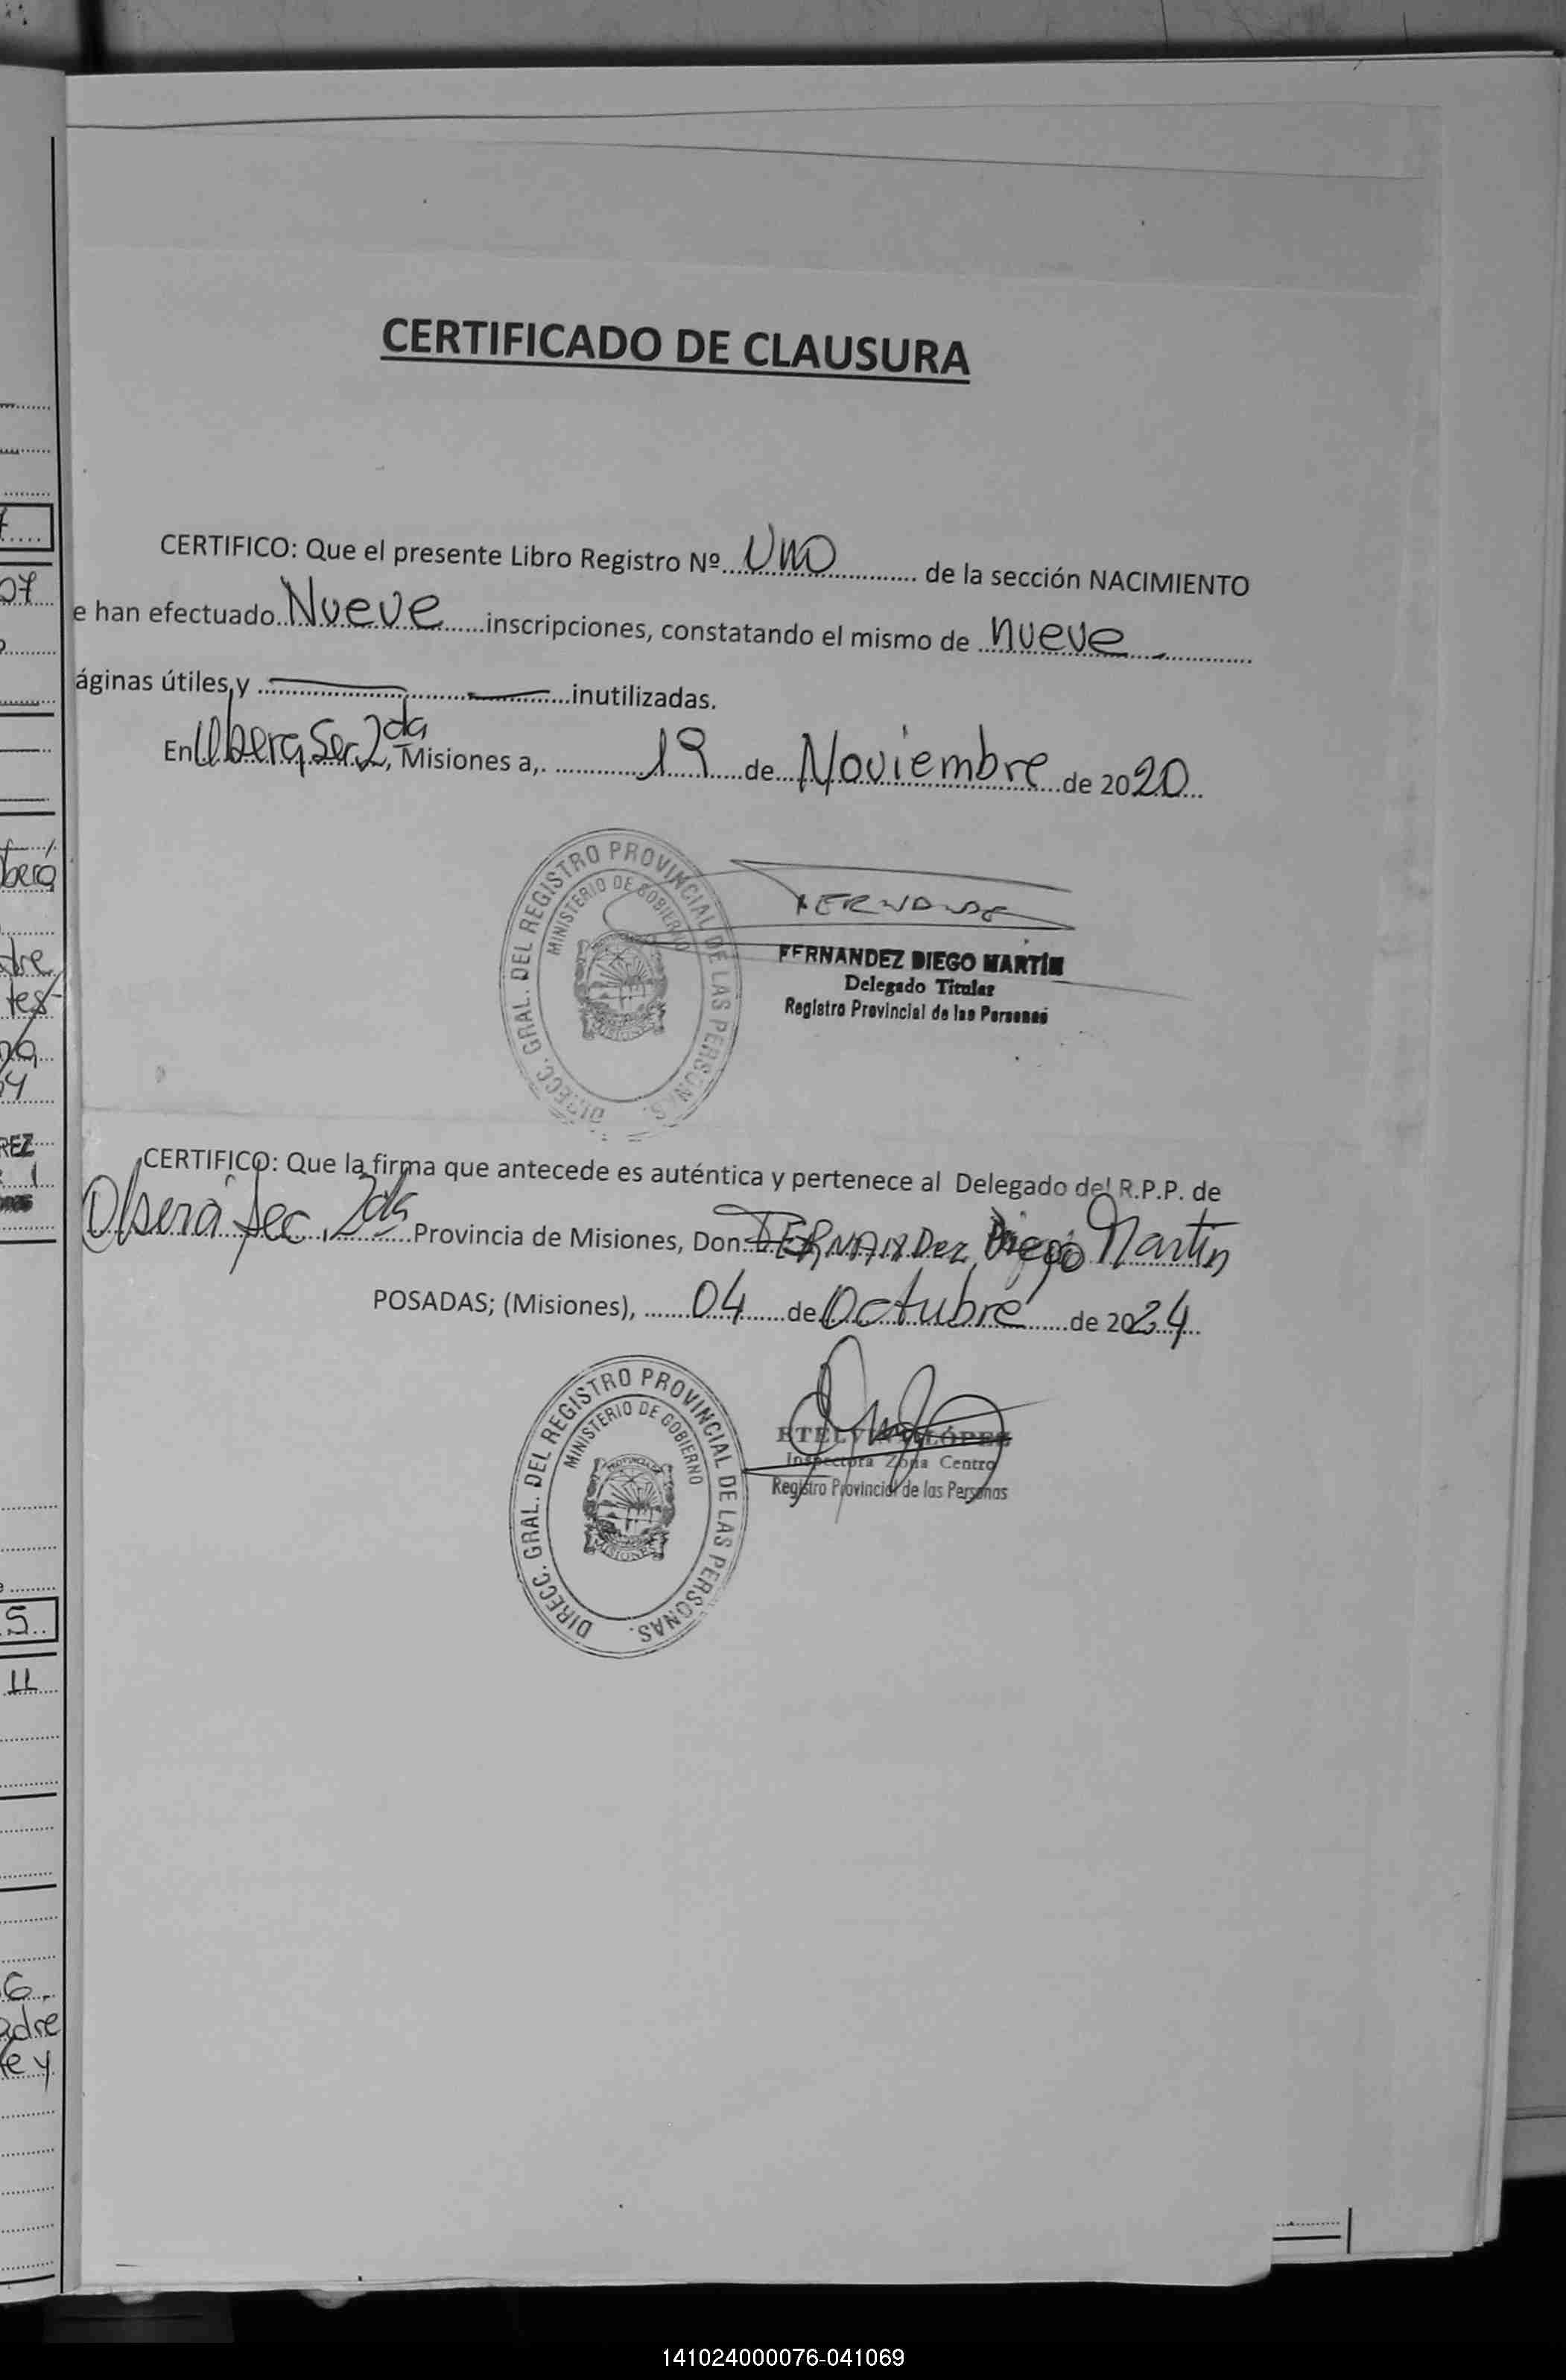 CERTIFICADO DE CLAUSURA
CERTIFICO: Que el presente Libro Registro Nº...Uno............ de la sección NACIMIENTO
e han efectuado..Nueve......inscripciones, constatando el mismo de ..nueve..............
áginas útiles,y ........................................inutilizadas.
En Obera Sec. 2da, Misiones a,. ............19.....de...Noviembre..de 2020...
DIRECC. GRAL. DEL REGISTRO PROVINCIAL DE LAS PERSONAS.
MINISTERIO DE GOBIERNO
MISIONES
FERNANDEZ DIEGO MARTÍN
Delegado Titular
Registro Provincial de las Personas
CERTIFICO: Que la firma que antecede es auténtica y pertenece al Delegado del R.P.P. de
Oberá Sec. 2da Provincia de Misiones, Don...FERNANDEZ Diego Martín
POSADAS; (Misiones), .......04......de Octubre......de 2024..
DIRECC. GRAL. DEL REGISTRO PROVINCIAL DE LAS PERSONAS.
MINISTERIO DE GOBIERNO
MISIONES
ETELVINA LÓPEZ
Inspectora Zona Centro
Registro Provincial de las Personas
07
berá
REZ
5
11
6.
adre
141024000076-041069